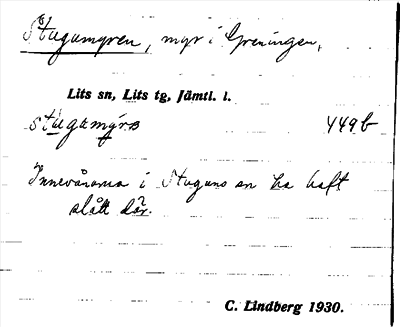 Stugumyren, myr i Greningen,
Lits sn, Lits tg, Jämtl. l.
stugumýrɴ 449b
Innevånarna i Stuguns sn ha haft
slått där.
C. Lindberg 1930.